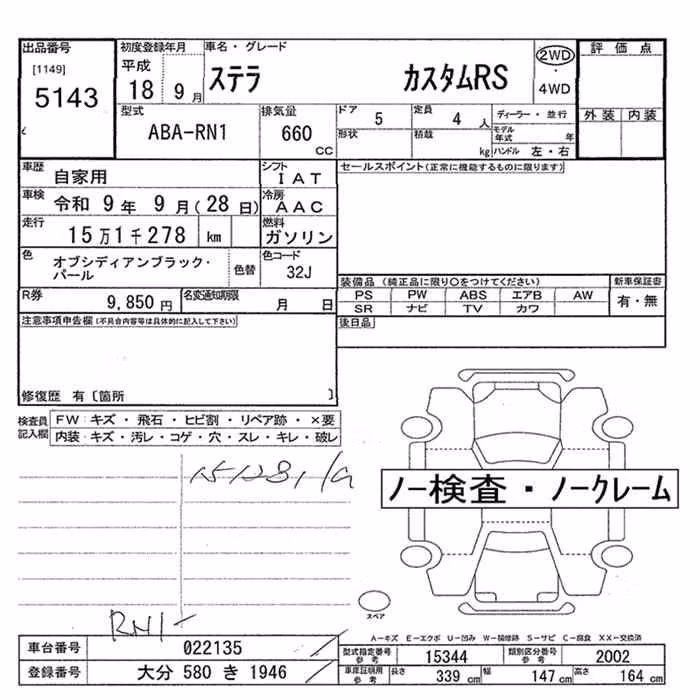 出品番号
[1149]
5143
初度登録年月
平成
18 9月
車名・グレード
ステラ カスタムRS
2WD
・
4WD
評価点
外装 内装
型式
ABA-RN1
排気量
660
CC
ドア 5
定員 4 人
形状
積載 kg
ディーラー・並行
モデル年式 年
ハンドル 左・右
車歴 自家用
シフト IAT
車検 令和 9年 9月(28日)
冷房 AAC
走行 15万1千278 km
燃料 ガソリン
色 オブシディアンブラック・パール
色替
色コード 32J
R券 9,850円
名変通知期限 月 日
セールスポイント(正常に機能するものに限ります)
装備品(純正品に限り〇をつけてください)
PS PW ABS エアB AW
SR ナビ TV カワ
新車保証書
有・無
後日品
注意事項申告欄(不具合内容等は具体的に記入して下さい)
修復歴 有〔箇所 〕
検査員記入欄
FW:キズ・飛石・ヒビ割・リペア跡・×要
内装:キズ・汚レ・コゲ・穴・スレ・キレ・破レ
ノー検査・ノークレーム
RN1-
スペア
A-キズ E-エクボ U-凹み W-補修跡 S-サビ C-腐食 XX-交換済
車台番号 022135
登録番号 大分 580 き 1946
型式指定番号参考 15344
類別区分番号参考 2002
車庫証明用参考 長さ 339 cm 幅 147 cm 高さ 164 cm